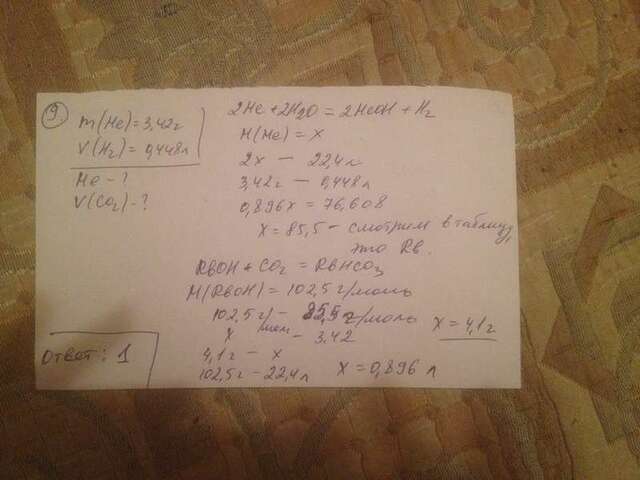 9.
m(Me) = 3,42 г
V(H₂) = 0,448 л
Me - ?
V(CO₂) - ?
2Me + 2H₂O = 2MeOH + H₂
M(Me) = x
2x — 22,4 л
3,42 г — 0,448 л
0,896x = 76,608
x = 85,5 - смотрим в таблицу,
это Rb.
RbOH + CO₂ = RbHCO₃
M(RbOH) = 102,5 г/моль
102,5 г/моль - 85,5 г/моль
x - 3,42 x = 4,1 г
4,1 г - x
102,5 г - 22,4 л x = 0,896 л
Ответ: 1